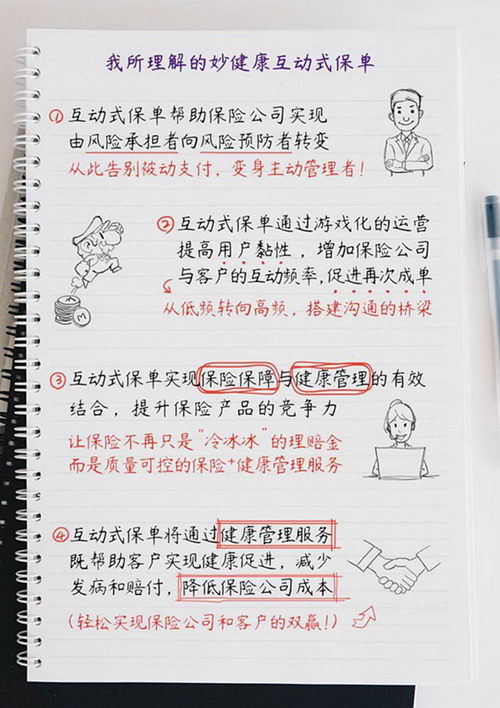 我所理解的妙健康互动式保单
① 互动式保单帮助保险公司实现
由风险承担者向风险预防者转变
从此告别被动支付，变身主动管理者！
② 互动式保单通过游戏化的运营
提高用户黏性，增加保险公司
与客户的互动频率，促进再次成单
从低频转向高频，搭建沟通的桥梁
③ 互动式保单实现保险保障与健康管理的有效
结合，提升保险产品的竞争力
让保险不再只是“冷冰冰”的理赔金
而是质量可控的保险+健康管理服务
④ 互动式保单将通过健康管理服务
既帮助客户实现健康促进，减少
发病和赔付，降低保险公司成本
（轻松实现保险公司和客户的双赢！）